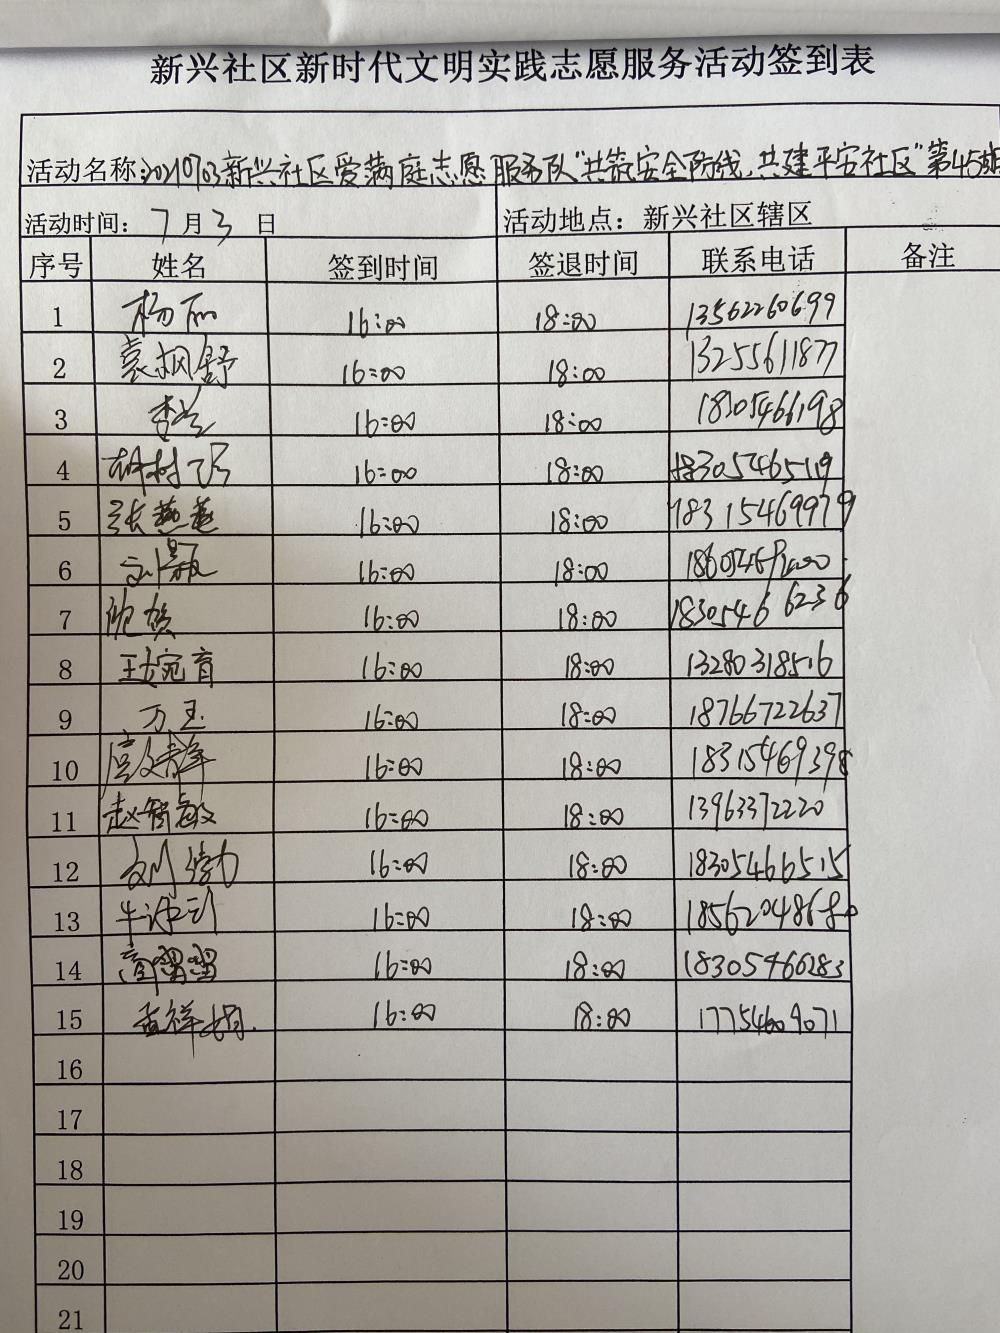 新兴社区新时代文明实践志愿服务活动签到表
活动名称:20210703新兴社区爱满庭志愿服务队"共筑安全防线,共建平安社区"第45期
活动时间: 7月3日 活动地点: 新兴社区辖区
序号 姓名 签到时间 签退时间 联系电话 备注
1 杨丽 16:00 18:00 13562260699
2 袁枫舒 16:00 18:00 13255611877
3 16:00 18:00 18305466198
4 16:00 18:00 18305465119
5 张燕燕 16:00 18:00 18315469979
6 16:00 18:00
7 16:00 18:00 18305466236
8 16:00 18:00 13280318516
9 万玉 16:00 18:00 18766722637
10 16:00 18:00 18315469398
11 赵智敏 16:00 18:00 13963372220
12 16:00 18:00 18305466515
13 16:00 18:00 18562048680
14 16:00 18:00 18305466283
15 孟祥娟 16:00 18:00 17754609071
16
17
18
19
20
21